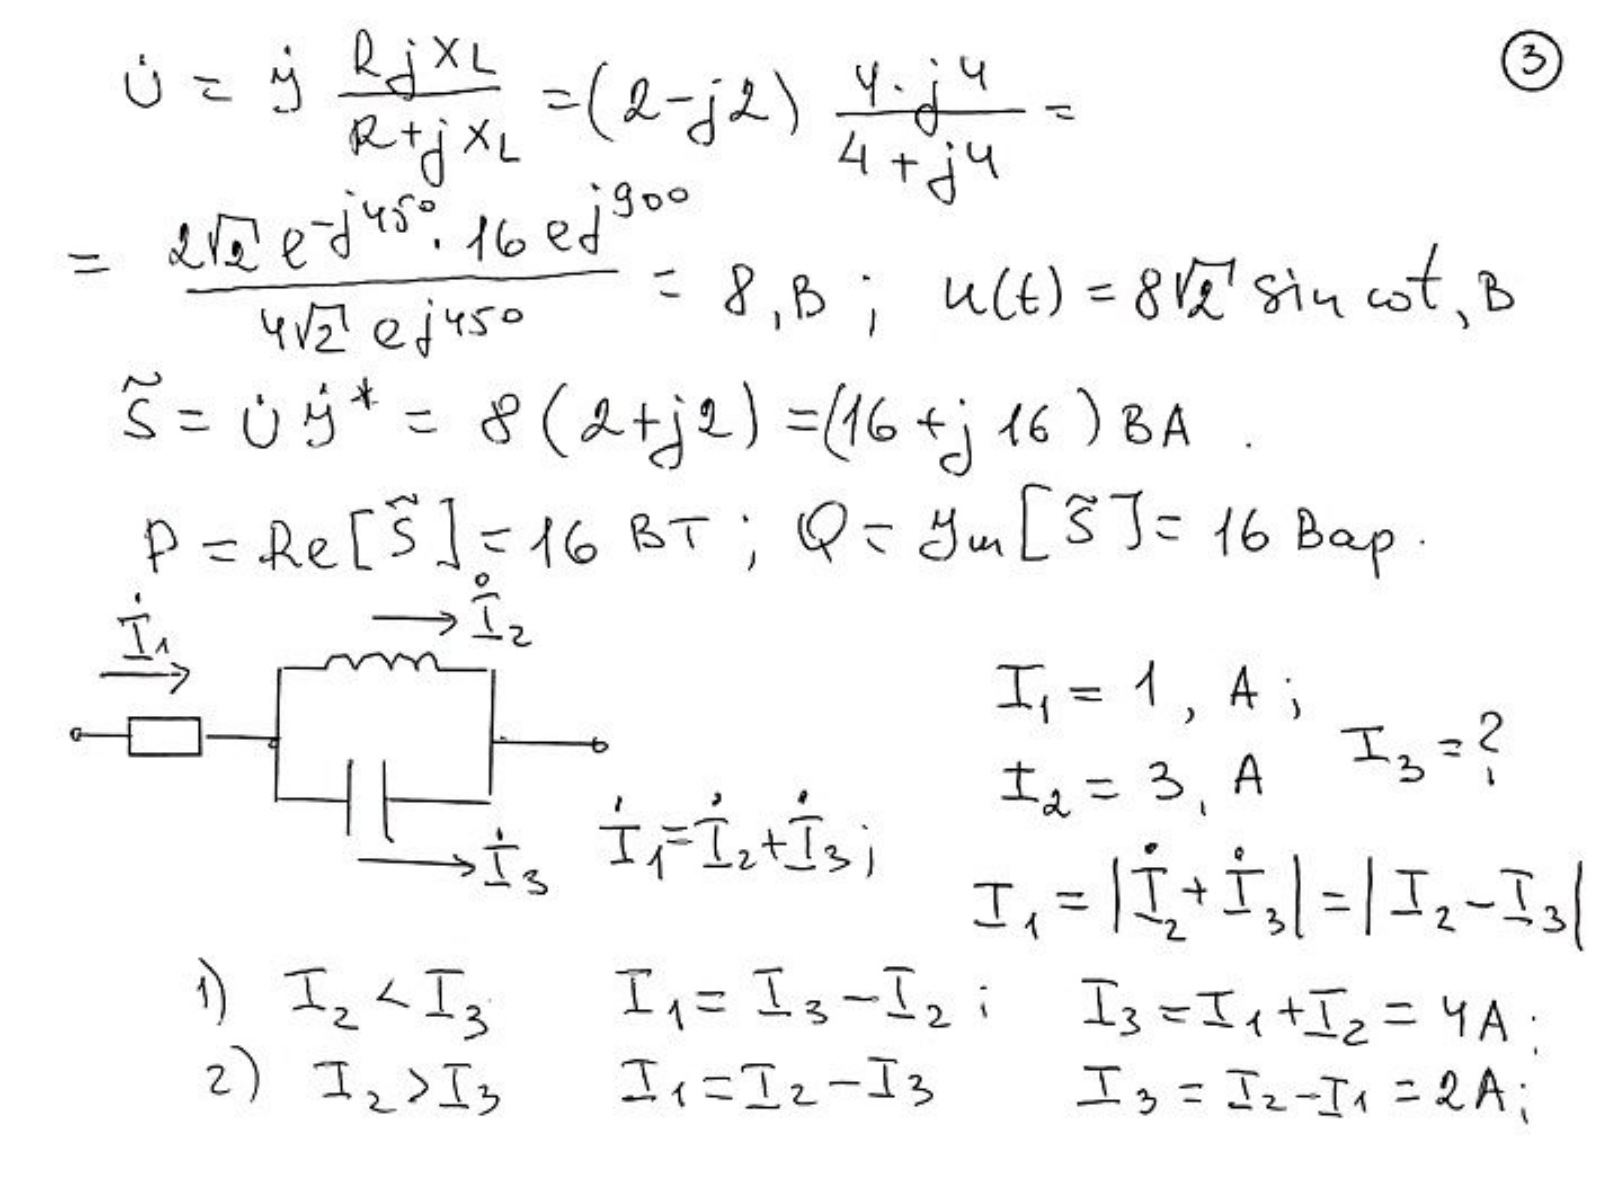 ③
U̇ = İ RjXL / (R+jXL) = (2-j2) 4·j4 / (4+j4) =
= 2√2 e^(-j45°) · 16 e^(j90°) / (4√2 e^(j45°)) = 8, В ; u(t) = 8√2 sin ωt, В
S̃ = U̇ İ* = 8 (2+j2) = (16+j16) ВА .
P = Re[S̃] = 16 ВТ ; Q = Im[S̃] = 16 Вар.
İ1
İ2
İ3
I1 = 1, А ;
I2 = 3, А
I3 = ?
İ1 = İ2 + İ3 ;
I1 = |İ2 + İ3| = |I2 - I3|
1) I2 < I3 I1 = I3 - I2 ; I3 = I1 + I2 = 4А ;
2) I2 > I3 I1 = I2 - I3 I3 = I2 - I1 = 2А ;